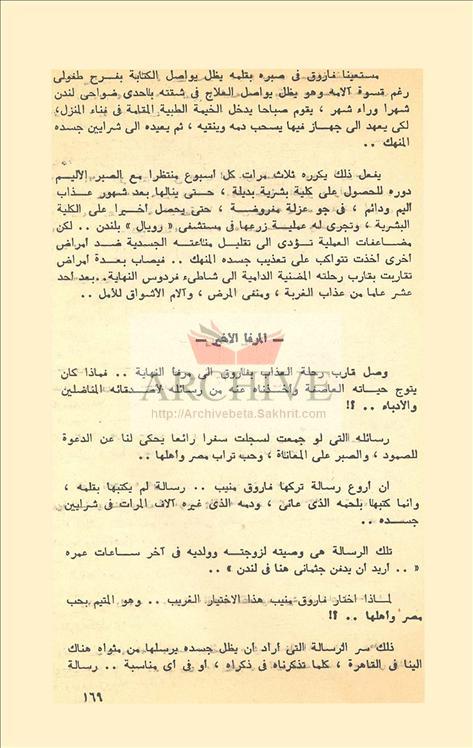 مستعينا فاروق فى صبره بقلمه يظل يواصل الكتابة بفرح طفولى
رغم قسوة آلامه وهو يظل يواصل العلاج فى شقته باحدى ضواحى لندن
شهرا وراء شهر ، يقوم صباحا يدخل الخيمة الطبية المقامة فى فناء المنزل؛
لكى يعهد الى جهاز فيها يسحب دمه وينقيه ، ثم يعيده الى شرايين جسده
المنهك ..
يفعل ذلك يكرره ثلاث مرات كل أسبوع منتظرا مع الصبر الاليم
دوره للحصول على كلية بشرية بديلة ، حتى ينالها بعد شهور عذاب
اليم ودائم ، فى جو عزلة مفروضة ، حتى يحصل أخيرا على الكلية
البشرية ، وتجرى له عملية زرعها فى مستشفى « رويال » بلندن .. لكن
مضاعفات العملية تؤدى الى تقليل مناعته الجسدية ضد أمراض
أخرى أخذت تتواكب على تعذيب جسده المنهك .. فيصاب بعدة أمراض
تقاربت بقارب رحلته المضنية الدامية الى شاطىء فردوس النهاية..بعد أحد
عشر عاما من عذاب الغربة ، ومنفى المرض ، وآلام الاشواق للأمل ..
— المرفا الأخير —
وصل قارب رحلة العذاب بفاروق الى مرفا النهاية .. فماذا كان
يتوج حياته العاصفة وأخذناه عنه من رسائله لأصدقائه المناضلين
والادباء .. ؟!
ARCHIVE
http://Archivebeta.Sakhrit.com
رسائله التى لو جمعت لسجلت سفرا رائعا يحكى لنا عن الدعوة
للصمود ، والصبر على المعاناة ، وحب تراب مصر وأهلها ..
ان أروع رسالة تركها فاروق منيب .. رسالة لم يكتبها بقلمه ،
وانما كتبها بلحمه الذى عانى ، ودمه الذى غيره آلاف المرات فى شرايين
جسده ..
تلك الرسالة هى وصيته لزوجته وولديه فى آخر ساعات عمره
« .. أريد أن يدفن جثمانى هنا فى لندن » ..
لماذا اختار فاروق منيب هذا الاختيار الغريب .. وهو المتيم بحب
مصر وأهلها .. ؟!
ذلك سر الرسالة التى أراد أن يظل جسده يرسلها من مثواه هناك
الينا فى القاهرة ، كلما تذكرناه فى ذكراه ، أو فى أى مناسبة .. رسالة
١٦٩